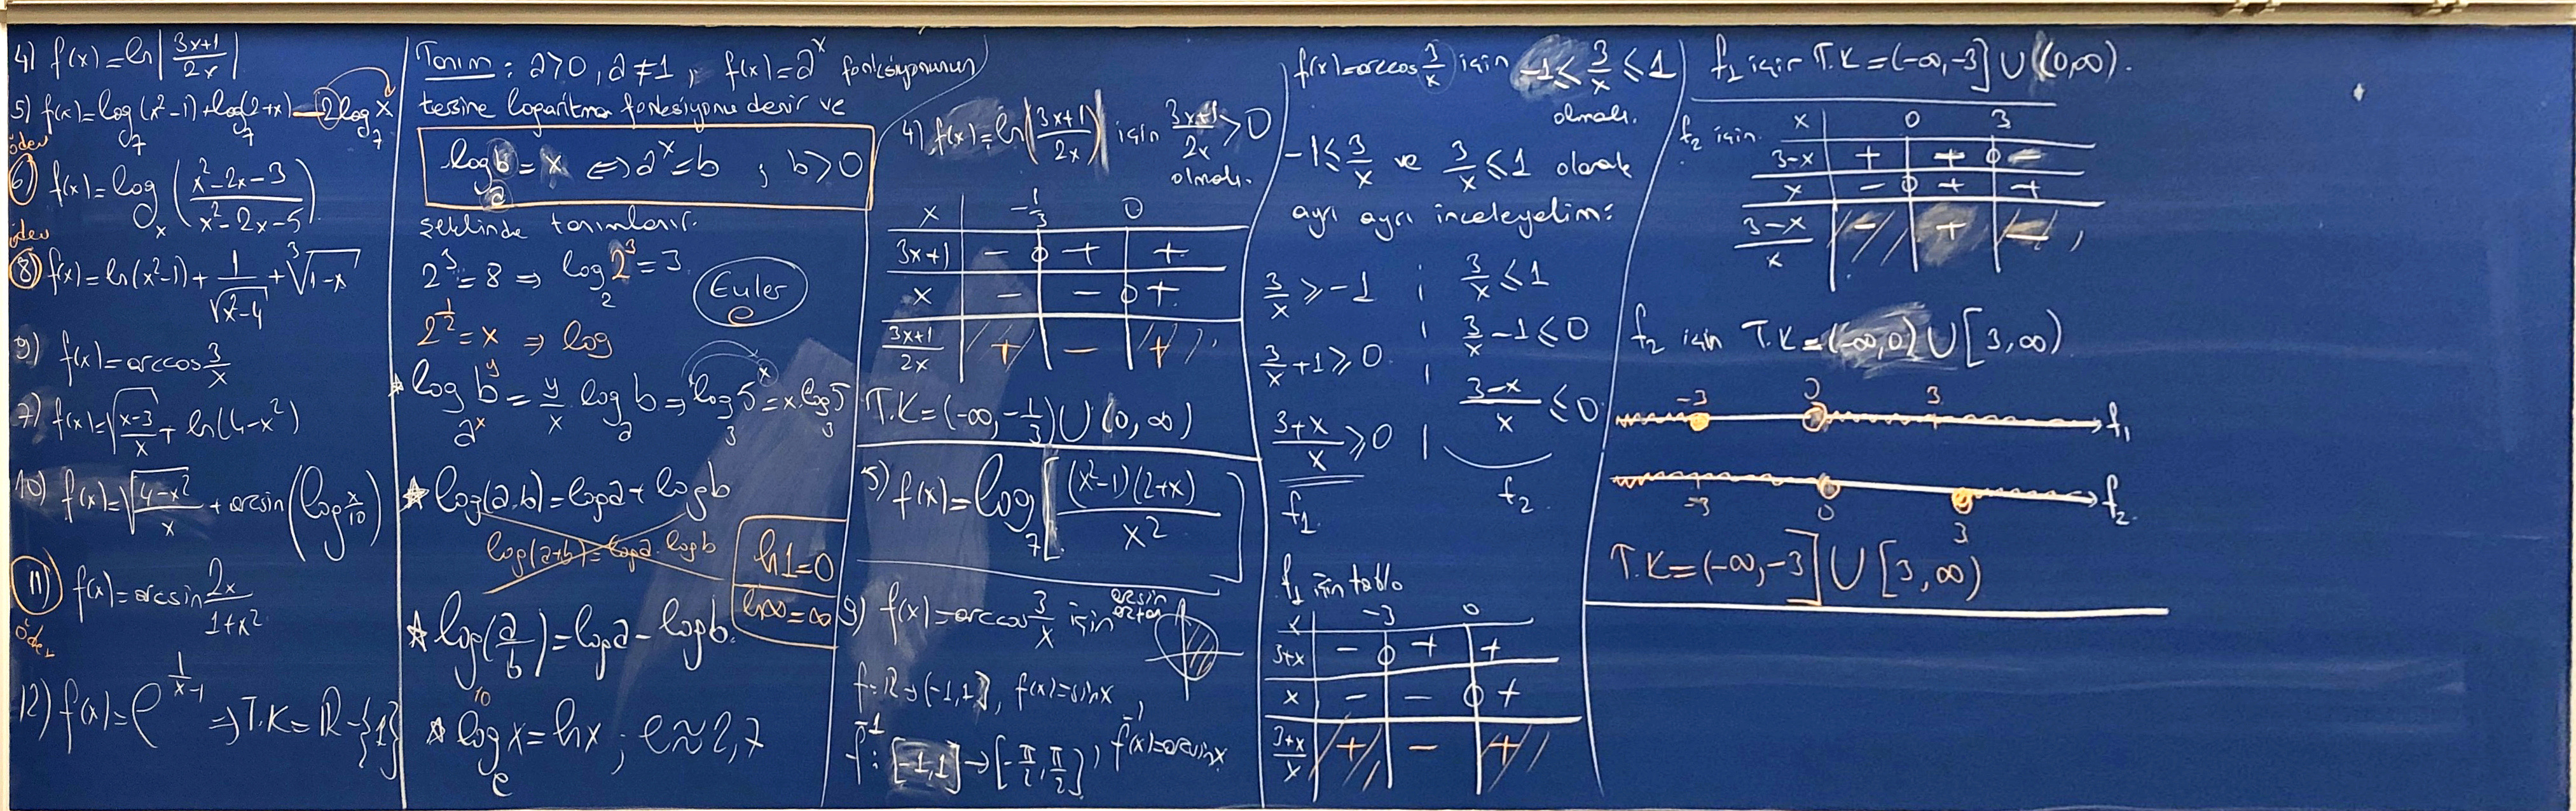 4) f(x)=ln|3x+1/2x|
5) f(x)=log₇(x²-1)+log₇(2+x)-2log₇x
ödev
6) f(x)=logₓ(x²-2x-3/x²-2x-5)
ödev
8) f(x)=ln(x²-1)+1/√(x²-4)+³√(1-x)
9) f(x)=arccos 3/x
7) f(x)=√(x-3/x)+ln(4-x²)
10) f(x)=√(4-x²/x)+arcsin(log x/10)
11) f(x)=arcsin 2x/1+x²
ödev
12) f(x)=e^(1/x-1) ⇒ T.K=R-{1}
Tanım: a>0, a≠1, f(x)=aˣ fonksiyonunun
tersine logaritma fonksiyonu denir ve
logₐb=x ⇔ aˣ=b ; b>0
şeklinde tanımlanır.
2³=8 ⇒ log₂2³=3
Euler
e
2^(1/2)=x ⇒ log
* log_(aˣ) b^y = y/x logₐb ⇒ log₃5ˣ=x.log₃5
* log(a.b)=loga+logb
log(a+b)=loga.logb
ln1=0
ln∞=∞
* log(a/b)=loga-logb.
10
* logₑx=lnx ; e≈2,7
4) f(x)=ln|3x+1/2x| için 3x+1/2x>0
olmalı.
x -1/3 0
3x+1 - 0 + +
x - - 0 +
3x+1/2x + - +
T.K=(-∞,-1/3)∪(0,∞)
5) f(x)=log₇[(x²-1)(2+x)/x²]
9) f(x)=arccos 3/x için arcsin arctan
f:R→[-1,1], f(x)=sinx
f⁻¹:[-1,1]→[-π/2,π/2], f⁻¹(x)=arcsinx
f(x)=arccos 3/x için -1≤3/x≤1
olmalı.
-1≤3/x ve 3/x≤1 olarak
ayrı ayrı inceleyelim:
3/x≥-1 ; 3/x≤1
3/x+1≥0 3/x-1≤0
3+x/x≥0 3-x/x≤0
f₁ f₂
f₁ için tablo
x -3 0
3+x - 0 + +
x - - 0 +
3+x/x + - +
f₁ için T.K=(-∞,-3]∪(0,∞).
f₂ için
x 0 3
3-x + + 0 -
x - 0 + +
3-x/x - + -
f₂ için T.K=(-∞,0)∪[3,∞)
-3 0 3 f₁
-3 0 3 f₂
T.K=(-∞,-3]∪[3,∞)